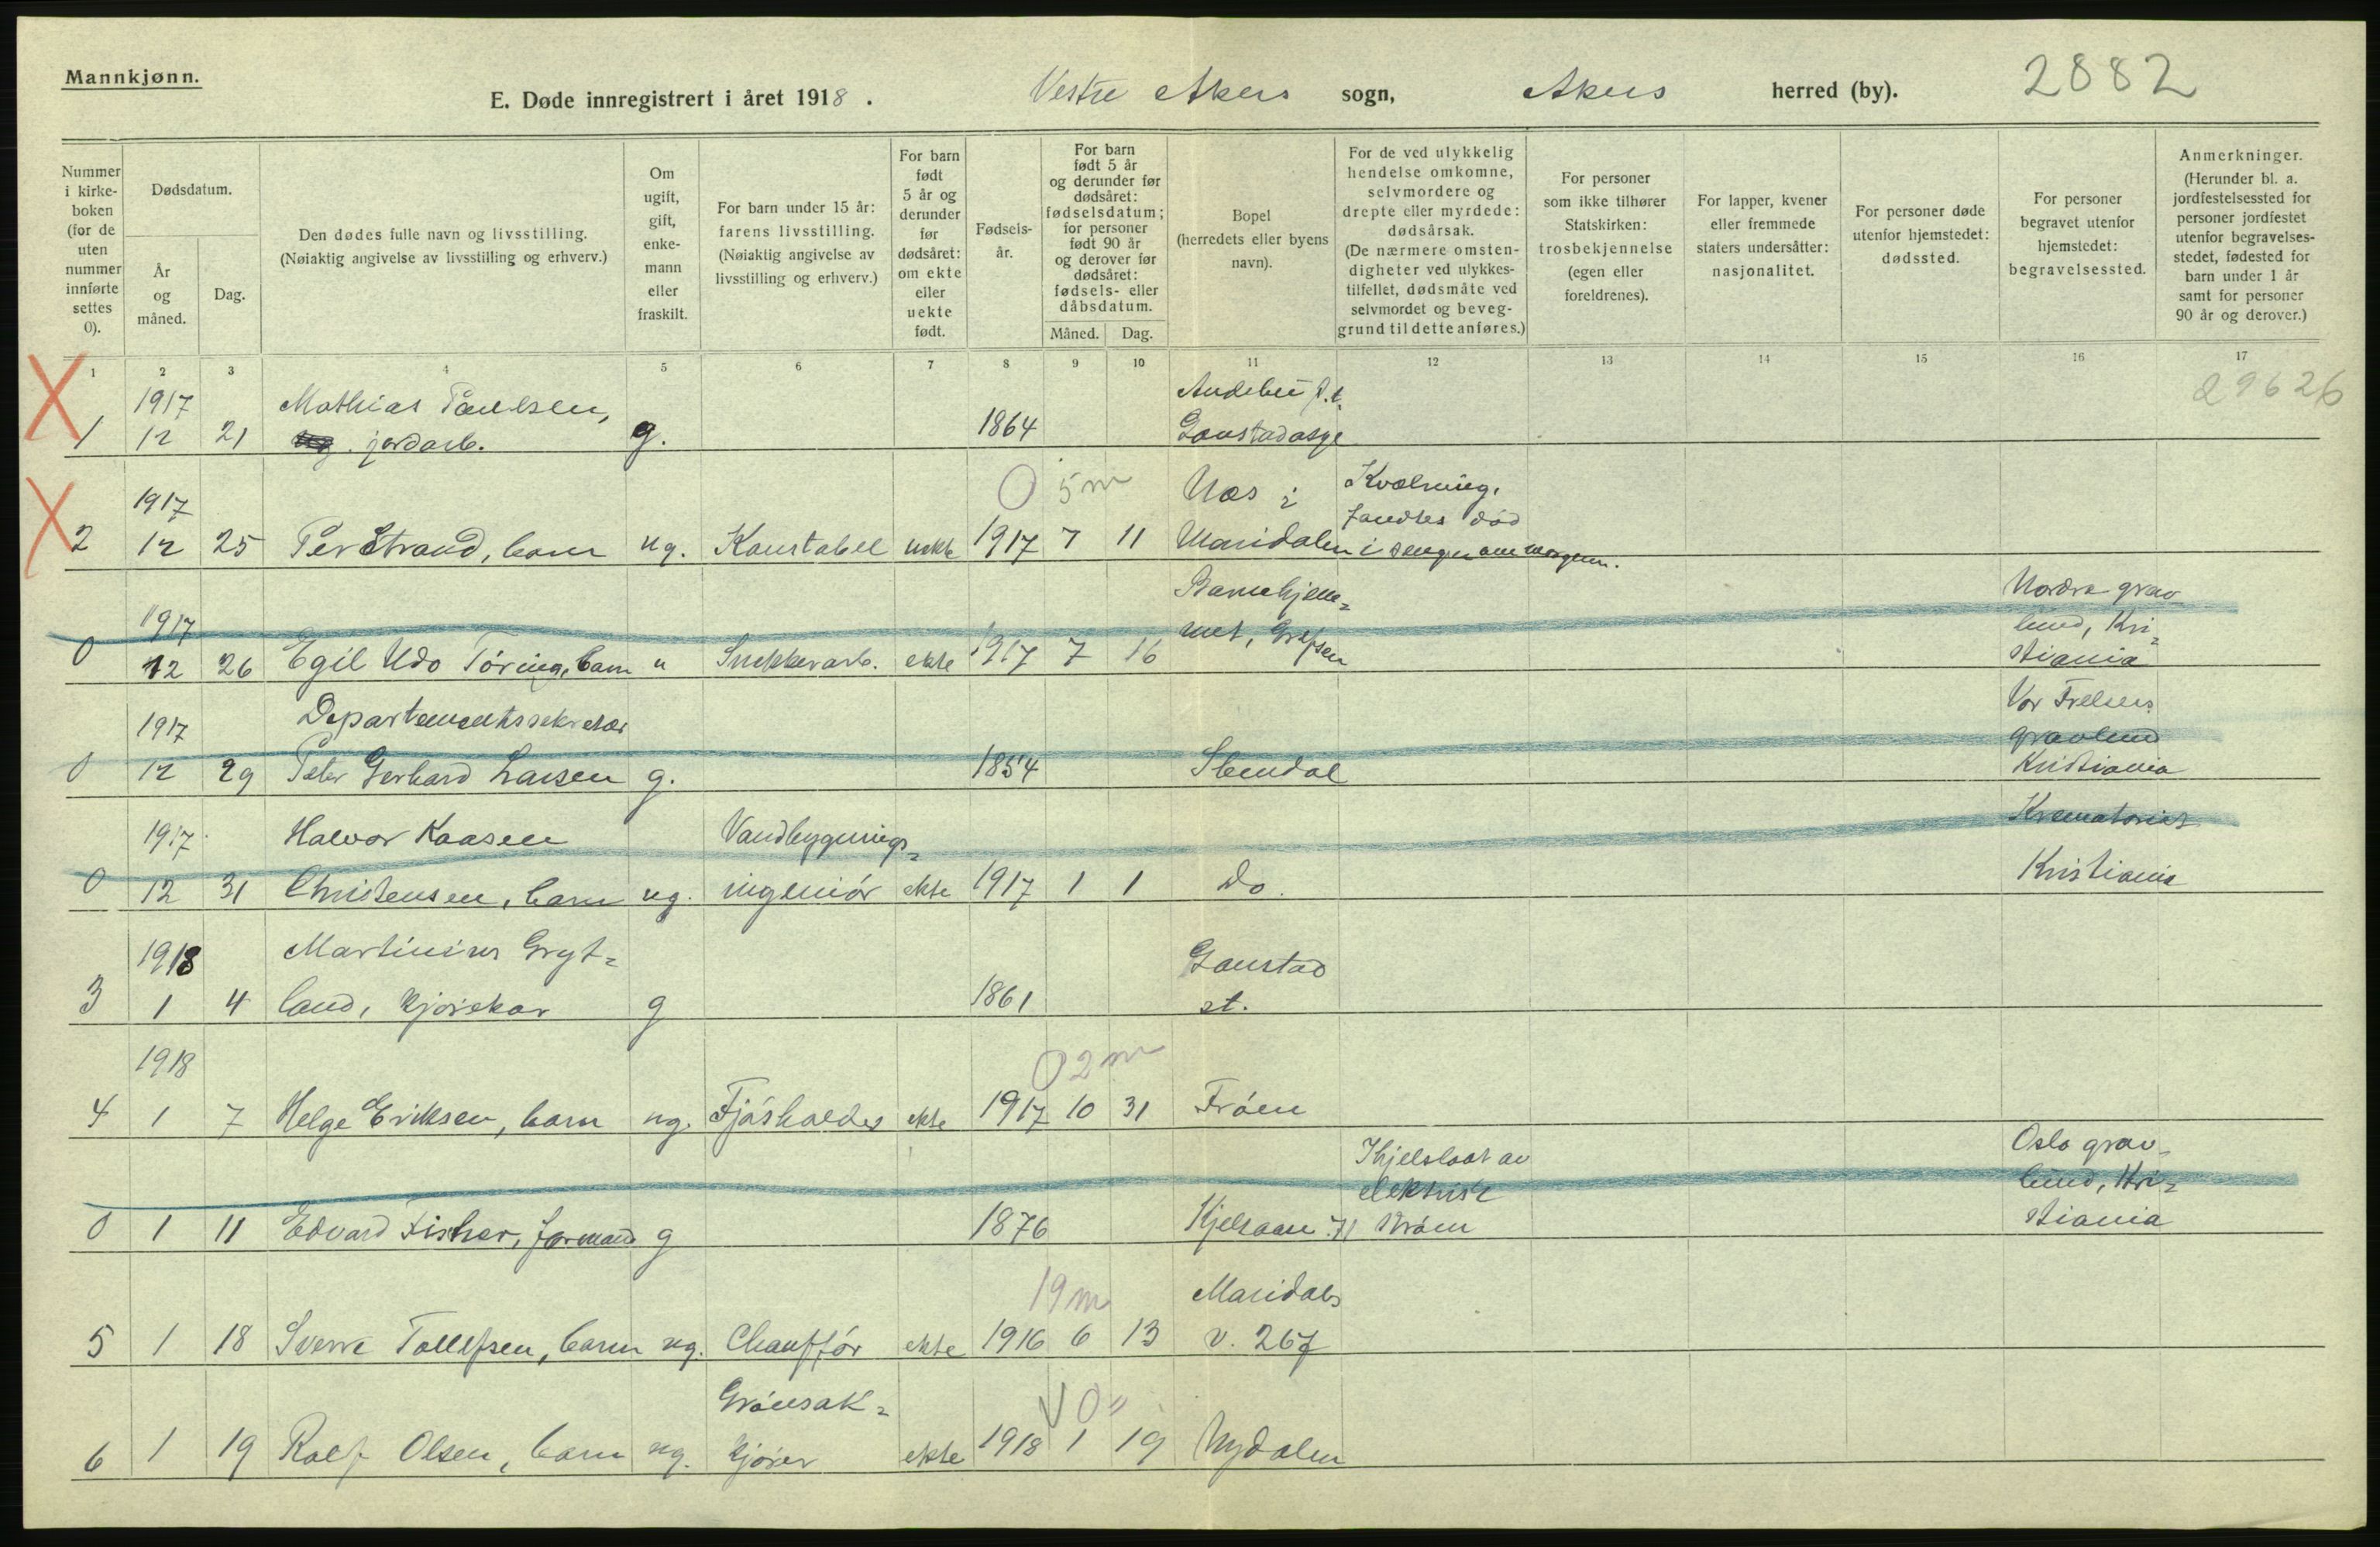 Mannkjønn.
E. Døde innregistrert i året 1918. Vestre Akers sogn, Akers herred (by). 2882
Nummer i kirke-boken (for de uten nummer innførte settes 0).
Dødsdatum.
År og måned.
Dag.
Den dødes fulle navn og livsstilling.
(Nøiaktig angivelse av livsstilling og erhverv.)
Om ugift, gift, enke-mann eller fraskilt.
For barn under 15 år: farens livsstilling.
(Nøiaktig angivelse av livsstilling og erhverv.)
For barn født 5 år og derunder før dødsåret: om ekte eller uekte født.
Fødsels-år.
For barn født 5 år og derunder før dødsåret: fødselsdatum; for personer født 90 år og derover før dødsåret: fødsels- eller dåbsdatum.
Måned. Dag.
Bopel (herredets eller byens navn).
For de ved ulykkelig hendelse omkomne, selvmordere og drepte eller myrdede: dødsårsak.
(De nærmere omsten-digheter ved ulykkes-tilfellet, dødsmåte ved selvmordet og beveg-grund til dette anføres.)
For personer som ikke tilhører Statskirken: trosbekjennelse (egen eller foreldrenes).
For lapper, kvener eller fremmede staters undersåtter: nasjonalitet.
For personer døde utenfor hjemstedet: dødssted.
For personer begravet utenfor hjemstedet: begravelsessted.
Anmerkninger.
(Herunder bl. a. jordfestelsessted for personer jordfestet utenfor begravelses-stedet, fødested for barn under 1 år samt for personer 90 år og derover.)
1 2 3 4 5 6 7 8 9 10 11 12 13 14 15 16 17
1917 Mathias Paulsen, Andebu p.t. 29626
1 12 21 jordarb. g. 1864 Gaustadasyl
1917 0 5 m Nes i Kvælning,
fandtes død
2 12 25 Per Strand, barn ug. Konstabel uekte 1917 7 11 Maridalen i sengen om morgenen.
1917 Barnehjem= Nordre grav
lund, Kri=
0 12 26 Egil Udo Tøring, barn u Snekkerarb. ekte 1917 7 16 met, Grefsen stiania
1917 Departementssekretær Vor Frelsers
gravlund
0 12 29 Peter Gerhard Larsen g. 1854 Stendal Kristiania
1917 Halvor Kaasen Vandbygnings= Krematoriet
0 12 31 Christensen, barn ug. ingeniör ekte 1917 1 1 Do. Kristiania
1918 Martinius Gryt= Gaustad
3 1 4 land, kjørekar g 1861 st.
1918 0 2 m
4 1 7 Helge Eriksen, barn ug. Fjøsholder ekte 1917 10 31 Frøen
Ihjelslaat av Oslo grav-
elektrisk lund, Kri=
0 1 11 Edvard Fisher, formand g 1876 Kjelsaas 71 strøm stiania
19 m Maridals
5 1 18 Sverre Tollefsen, barn ug. Chauffør ekte 1916 6 13 v. 267
Grønsak= V 0 "
6 1 19 Rolf Olsen, barn ug. kjører ekte 1918 1 19 Nydalen